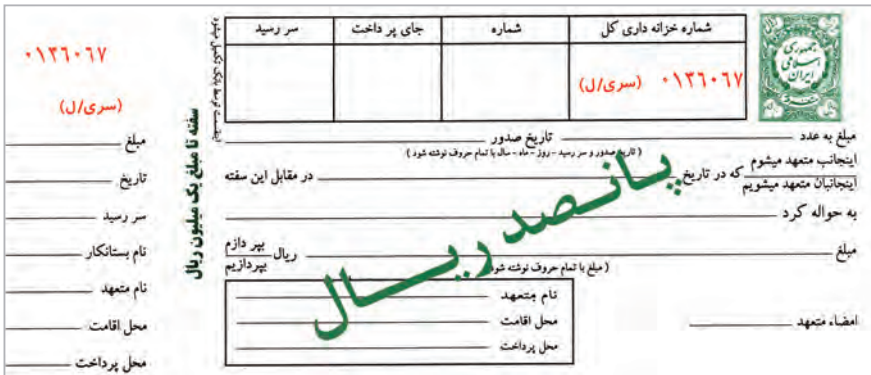 شماره خزانه داری کل
شماره
جای پر داخت
سر رسید
۰۱۳۶۰۶۷ (سری/ل)
جمهوری
اسلامی
ایران
مبلغ به عدد
تاریخ صدور
( تاریخ صدور و سر رسید - روز - ماه - سال با تمام حروف نوشته شود )
اینجانب متعهد میشوم
اینجانبان متعهد میشویم
که در تاریخ
در مقابل این سفته
به حواله کرد
مبلغ
ریال
بپر دازم
بپردازیم
( مبلغ با تمام حروف نوشته شود
پانصد ریال
نام متعهد
محل اقامت
محل پرداخت
امضاء متعهد
سفته تا مبلغ یک میلیون ریال
۰۱۳۶۰۶۷
(سری/ل)
مبلغ
تاریخ
سر رسید
نام بستانکار
نام متعهد
محل اقامت
محل پرداخت